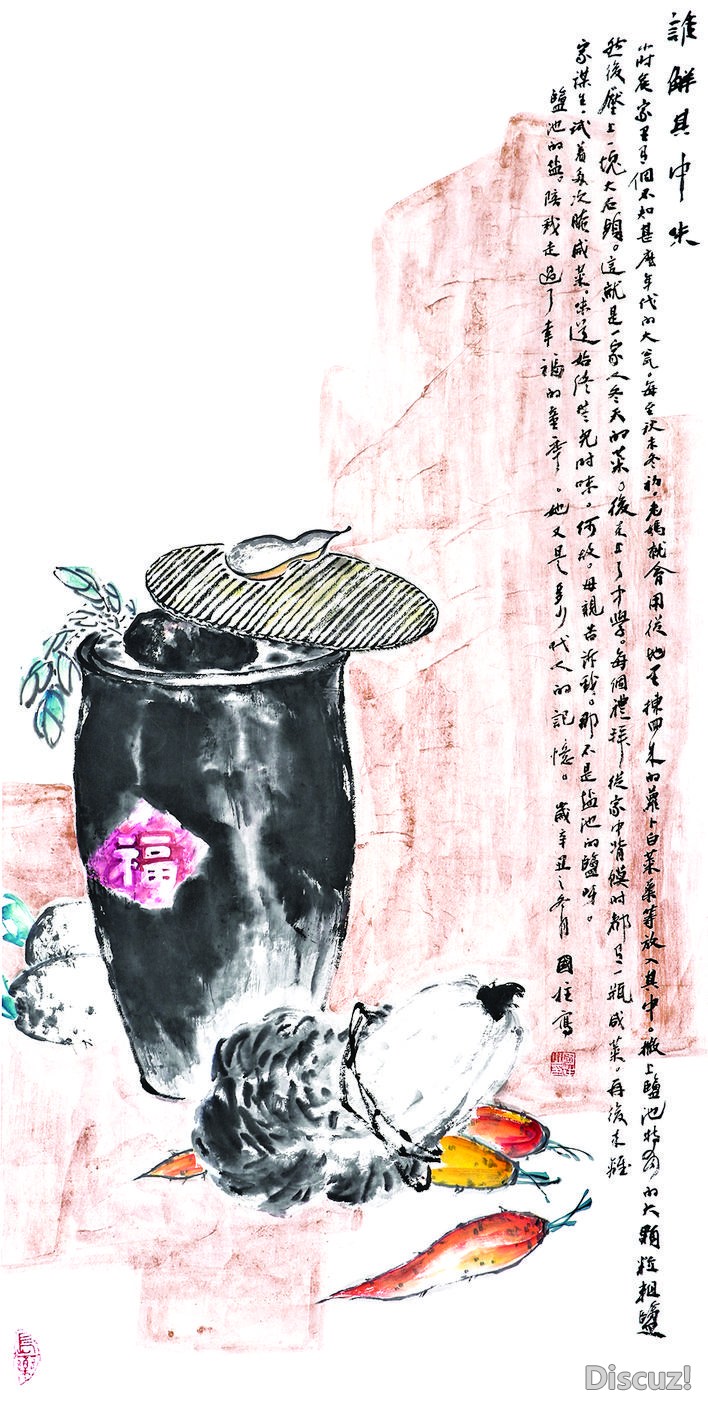 誰解其中味
小时候家里有個不知甚麽年代的大瓮。每至秋末冬初。老媽就會用從地里揀回来的蘿卜白菜等放入其中。撒上鹽池特有的大顆粒粗鹽
然後壓上一塊大石頭。這就是一家人冬天的菜。後来上了中學。每個禮拜從家中背饃时都有一瓶咸菜。再後来離
家謀生。试着多次腌咸菜。味道始终無兒时味。何故。母親告诉我。那不是盐池的鹽呀。
鹽池的盐。陪我走過了幸福的童年。她又是多少代人的記憶。歲辛丑之冬月 國柱寫
福
長樂
Discuz!